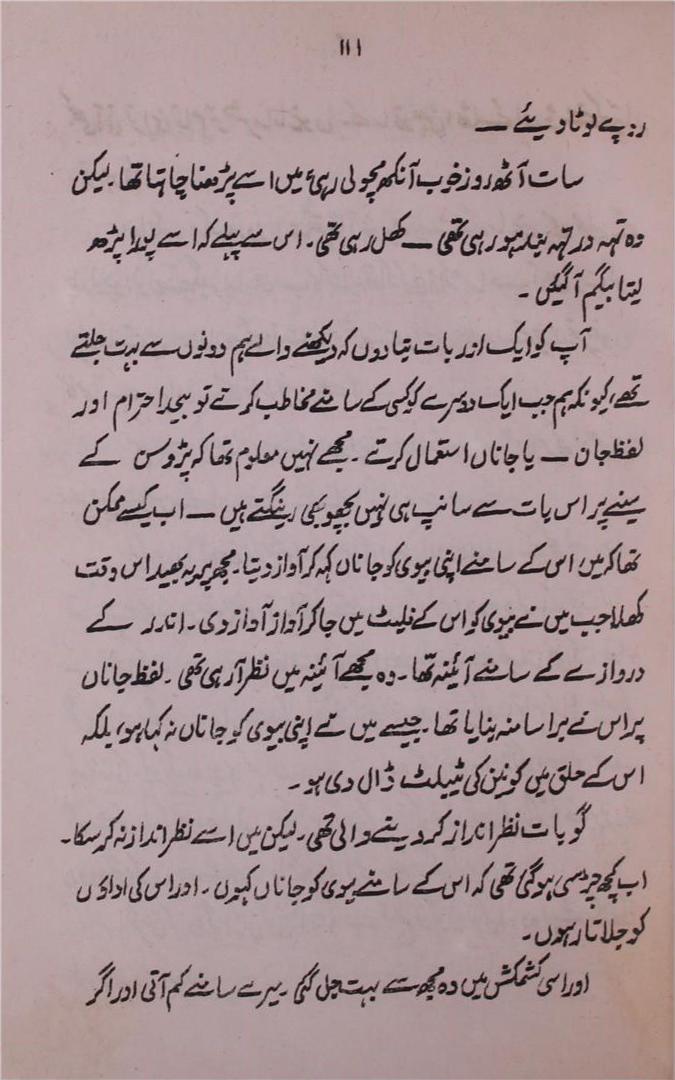 ۱۱۱
روپے لوٹا دیئے —
سات آٹھ روز خوب آنکھ مچولی رہی میں اسے پڑھنا چاہتا تھا۔ لیکن
وہ تہہ در تہہ بند ہو رہی تھی — کھل رہی تھی۔ اس سے پہلے کہ اسے پورا پڑھ
لیتا بیگم آگئیں۔
آپ کو ایک اور بات بتا دوں کہ دیکھنے والے ہم دونوں سے بہت جلتے
تھے، کیونکہ ہم جب ایک دوسرے کو کسی کے سامنے مخاطب کرتے تو بیحد احترام اور
لفظ جان — یا جاناں استعمال کرتے۔ مجھے نہیں معلوم تھا کہ پڑوسن کے
سینے پر اس بات سے سانپ ہی نہیں بچھو بھی رینگتے ہیں — اب کیسے ممکن
تھا کہ میں اس کے سامنے اپنی بیوی کو جاناں کہہ کر آواز دیتا۔ مجھ پر یہ بھید اس وقت
کھلا جب میں نے بیوی کو اس کے فلیٹ میں جا کر آواز آواز دی۔ اندر کے
دروازے کے سامنے آئینہ تھا۔ وہ مجھے آئینہ میں نظر آ رہی تھی۔ لفظ جاناں
پر اس نے برا سا منہ بنایا تھا۔ جیسے میں نے اپنی بیوی کو جاناں نہ کہا ہو، بلکہ
اس کے حلق میں کونین کی ٹیبلٹ ڈال دی ہو۔
گو بات نظر انداز کر دینے والی تھی۔ لیکن میں اسے نظر انداز نہ کر سکا۔
اب کچھ چڑ سی ہو گئی تھی کہ اس کے سامنے بیوی کو جاناں کہوں۔ اور اس کی اداؤں
کو جلاتا رہوں۔
اور اسی کشمکش میں وہ مجھ سے بہت جل گئی۔ میرے سامنے کم آتی اور اگر